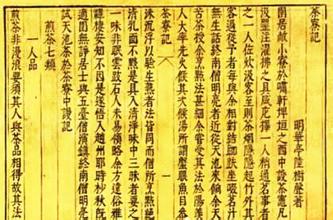 茶寮記
明華亭陸樹聲著
園居敞小寮於嘯軒埤垣之西中設茶竈凡瓢
汲罌注濯拂之具咸庀擇一人稍通茗事者主
之一人佐炊汲客至則茶煙隱隱起竹外其禪
客過從予者每與余相對結跏趺坐啜茗汁舉
無生話終南僧明亮者近從天池來餉余天池
苦茶授余烹點法甚細余嘗受其法於陽羨士
人大率先火候其次候湯所謂蟹眼魚目參
茶寮記
一
沸沫沉浮以驗生熟者法皆同而僧所烹點絕味
清乳面不黟是具入清淨味中三昧者要之此
一味非眠雲跂石人未易領略余方遠俗雅意
禪棲安知不因是遂悟入趙州耶時杪秋既望
適園無諍居士與五臺僧演鎮終南僧明亮同
試天池茶於茶寮中謾記
煎茶七類
一人品
煎茶非漫浪要須其人與茶品相得故其法